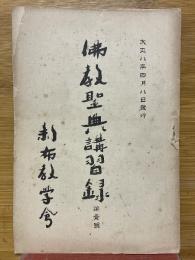 大正八年四月八日發行
佛教聖典講習録
第壹號
新布教学会